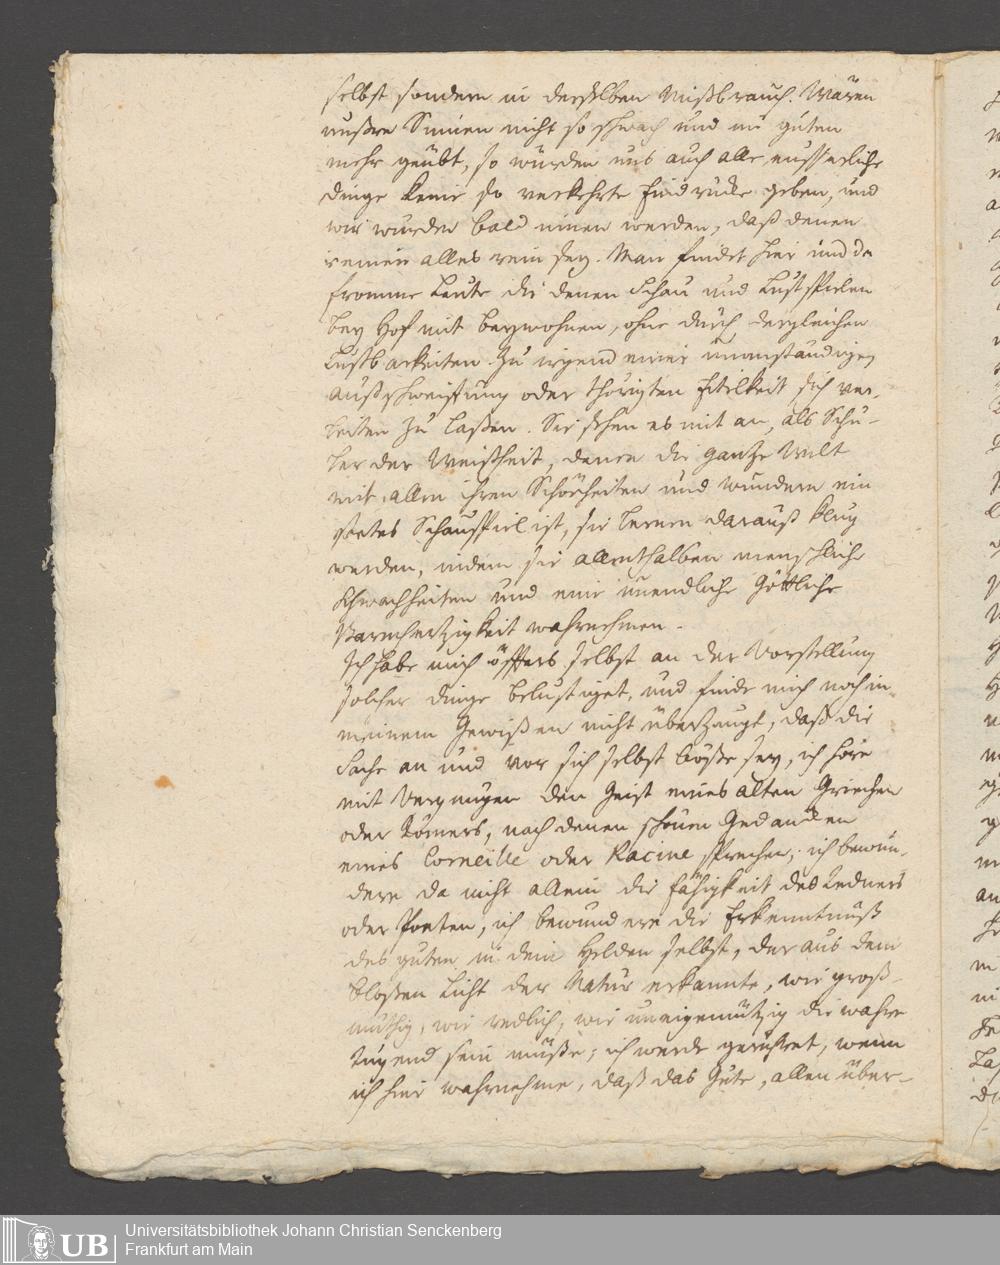 selbst sondern in derselben Mißbrauch. Wären
unßre Sinnen nicht so schwach und im guten
mehr geübt, so würden uns auch alle eusserliche
Dinge keine so verkehrte Eindrücke geben, und
wir würden bald innen werden, daß denen
reinen alles rein sey. Man findet hier und da
fromme Leute die denen Schau und Lustspielen
bey Hof mit beywohnen, ohne durch dergleichen
Lustbarkeiten zu irgend einer unanständigen
Außschweiffung oder thörigten Eitelkeit sich ver-
leiten zu laßen. Sie sehen es mit an, als Schü-
ler der Weißheit, denen die gantze Welt
mit allen ihren Thorheiten und Wundern ein
stetes Schauspiel ist, sie lernen darauß klug
werden, indem sie allenthalben menschliche
Schwachheiten und eine unendliche Göttliche
Barmhertzigkeit wahrnehmen.
Ich habe mich öffters selbst an der Vorstellung
solcher Dinge belustiget, und finde mich noch in
meinem Gewißen nicht überzeugt, daß die
Sache an und vor sich selbst böße sey, ich höre
mit Vergnügen den Geist eines alten Griechen
oder Römers, nach denen schönen Gedancken
eines Corneille oder Racine sprechen, ich bewun-
dere da nicht allein die Fähigkeit des Redners
oder Poeten, ich bewundere die Erkenntnüß
des guten in dem Helden selbst, der aus dem
bloßen Licht der Natur erkannte, wie groß-
müthig, wie redlich, wie uneigennützig die wahre
Tugend sein müße; ich werde gerühret, wenn
ich hier wahrnehme, daß das Gute, allen über-
UB
Universitätsbibliothek Johann Christian Senckenberg
Frankfurt am Main